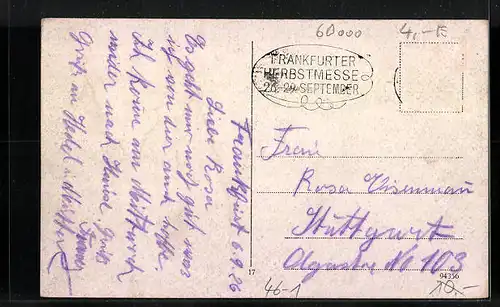 60000 4,-E
FRANKFURTER
HERBSTMESSE
26.-29. SEPTEMBER
Frankfurt 6.9.26
Liebe Rosa
Es geht mir gut was
ich von dir auch hoffe.
Ich komm am Mittwoch
wieder nach Hause. Gruß
Gruß an
Frau
Rosa Eisenmann
Stuttgart
Olgastr No 103
17
94356
46-1
20.-